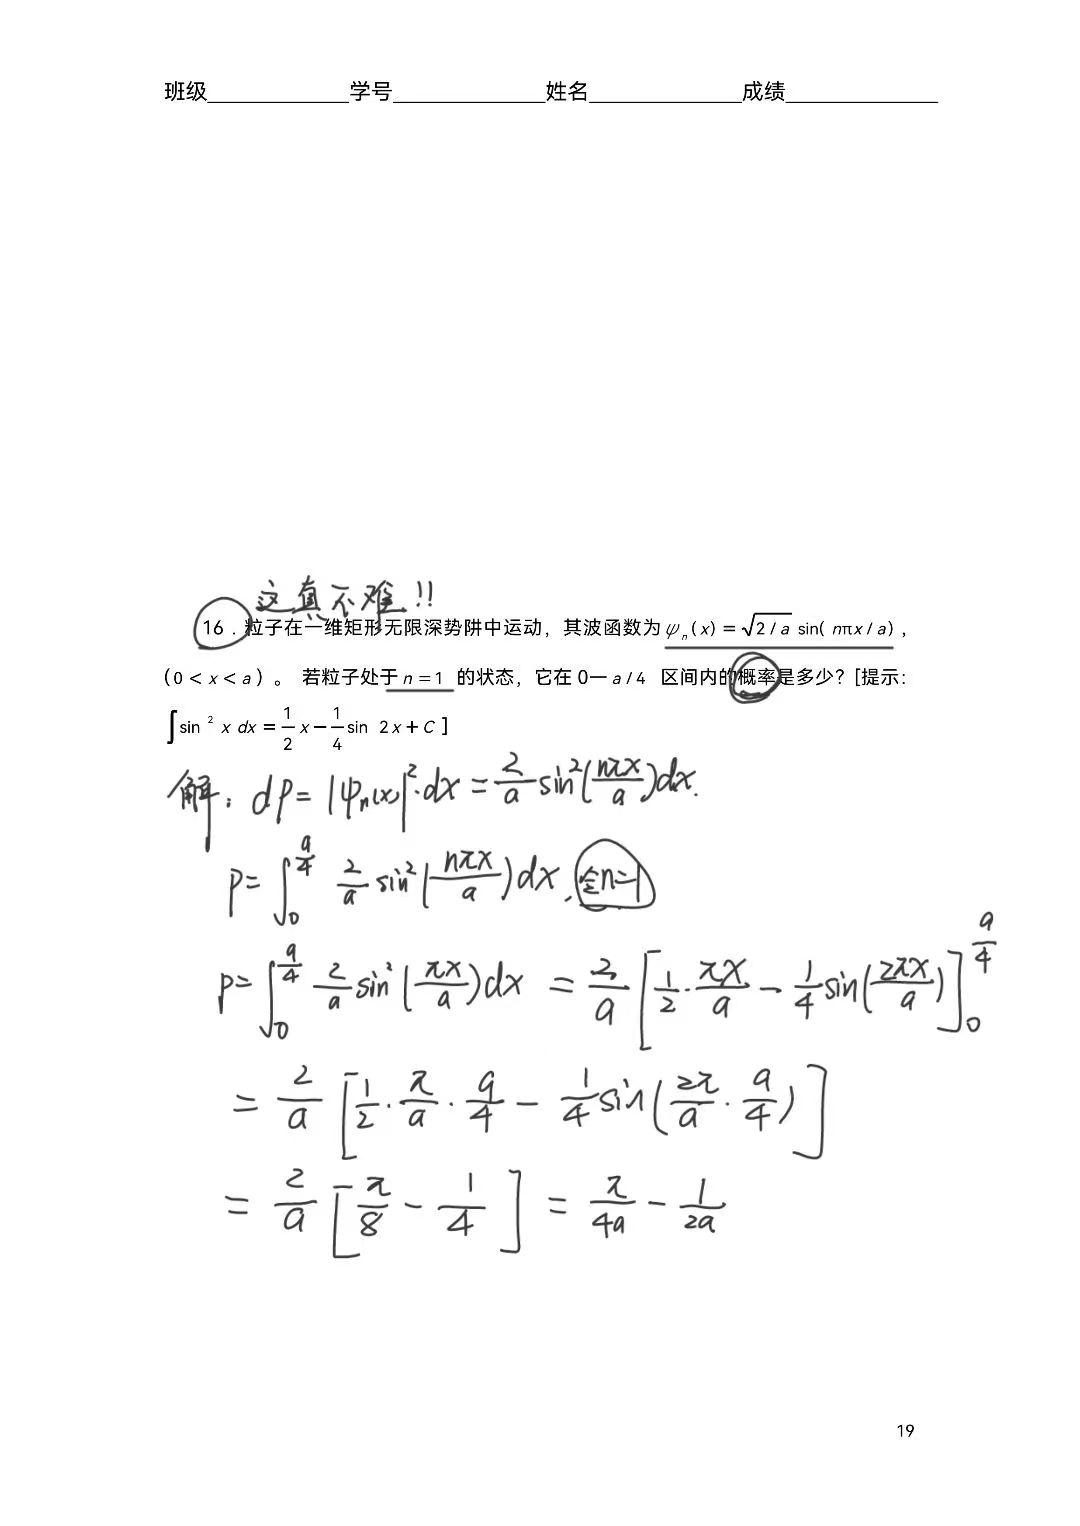 班级____________学号____________姓名____________成绩____________
这真不难!!
16．粒子在一维矩形无限深势阱中运动，其波函数为ψn(x)=√2/a sin(nπx/a)，
(0<x<a)。 若粒子处于 n=1 的状态，它在 0—a/4 区间内的概率是多少？[提示：
∫sin²x dx=1/2 x−1/4 sin 2x+C ]
解：dP=|ψn(x)|²·dx=2/a sin²(nπx/a)dx.
P=∫₀^(a/4) 2/a sin²(nπx/a)dx, 令n=1
P=∫₀^(a/4) 2/a sin²(πx/a)dx = 2/a [1/2·πx/a − 1/4 sin(2πx/a)]₀^(a/4)
= 2/a [1/2·π/a·a/4 − 1/4 sin(2π/a·a/4)]
= 2/a [π/8 − 1/4] = π/4a − 1/2a
19